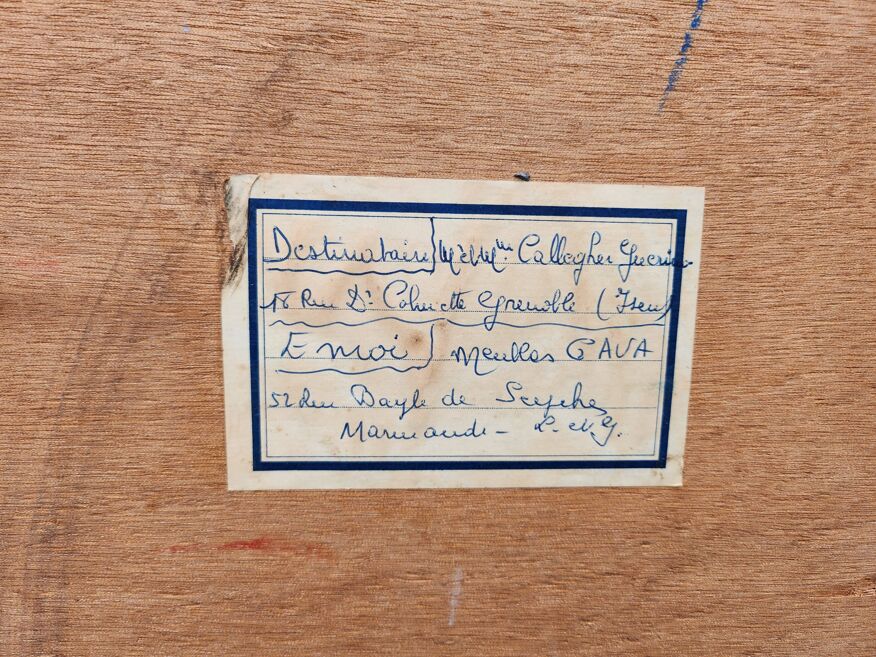 Destinataire M et Mme Callegher Guerino
18 Rue Dr Cohuette Grenoble (Isere)
E moi Meubles CAVA
52 Rue Bayle de Seyches
Marmande - L. et G.